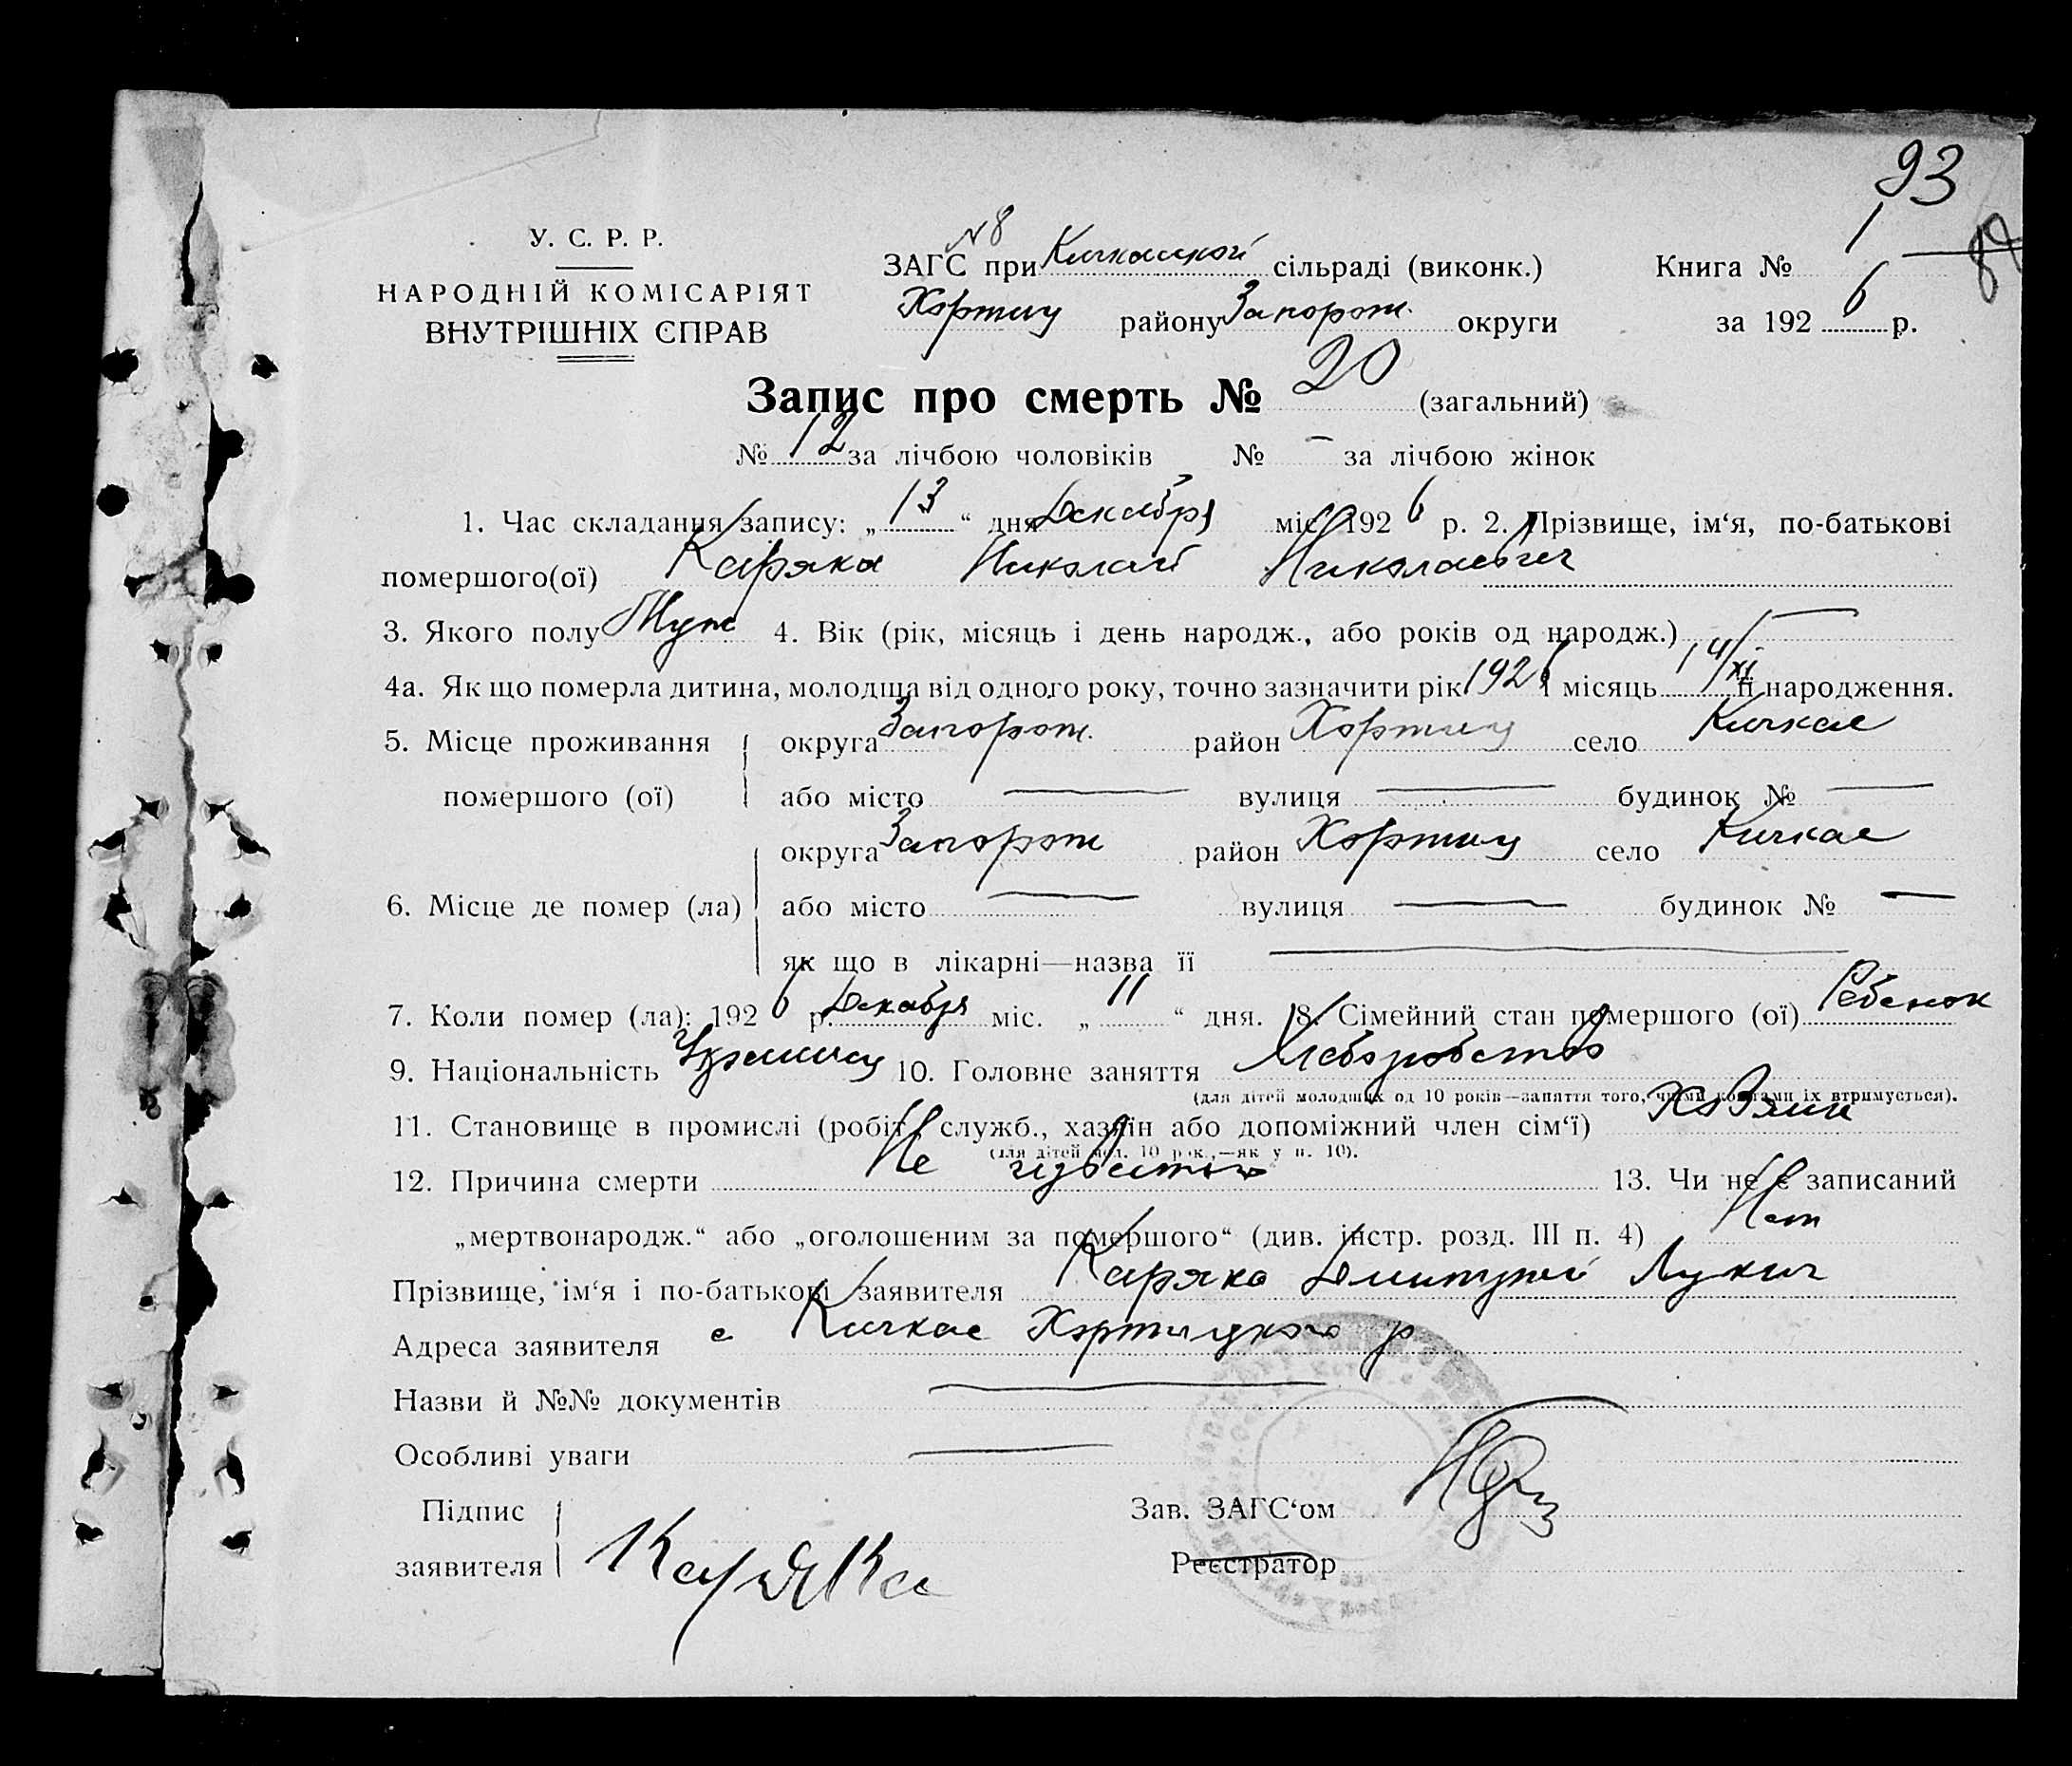 93
87
У. С. Р. Р.
НАРОДНІЙ КОМІСАРІЯТ
ВНУТРІШНІХ СПРАВ
N 8
ЗАГС при Кичкасской сільраді (виконк.)
Хортиц району Запорож. округи
Книга № 1
за 1926 р.
Запис про смерть № 20 (загальний)
№ 12 за лічбою чоловіків № – за лічбою жінок
1. Час складання запису: „13“ дня Декабря міс. 1926 р. 2. Прізвище, ім‘я, по-батькові
помершого(ої) Каряка Николай Николаевич
3. Якого полу Муж 4. Вік (рік, місяць і день народж., або років од народж.) —
4а. Як що померла дитина, молодша від одного року, точно зазначити рік 1926 і місяць 14/XI її народження.
5. Місце проживання округа Запорож. район Хортиц село Кичкас
помершого (ої) або місто — вулиця — будинок № —
округа Запорож район Хортиц село Кичкас
6. Місце де помер (ла) або місто — вулиця — будинок № —
як що в лікарні—назва її —
7. Коли помер (ла): 1926 р. Декабря міс. „11“ дня. 8. Сімейний стан помершого (ої) Ребенок
9. Національність Украинец 10. Головне заняття Хлеборобство
(для дітей молодших од 10 років—заняття того, чиїми коштами їх втримується).
11. Становище в промислі (робіт., служб., хазяїн або допоміжний член сім‘ї) Хозяин
(для дітей мол. 10 рок.,—як у п. 10).
12. Причина смерти Не известно 13. Чи не є записаний
„мертвонародж.“ або „оголошеним за помершого“ (див. інстр. розд. III п. 4) Нет
Прізвище, ім‘я і по-батькові заявителя Каряка Дмитрий Лукич
Адреса заявителя с Кичкас Хортицкого р
Назви й №№ документів —
Особливі уваги —
Підпис
заявителя Каряка
Зав. ЗАГС‘ом
Реєстратор